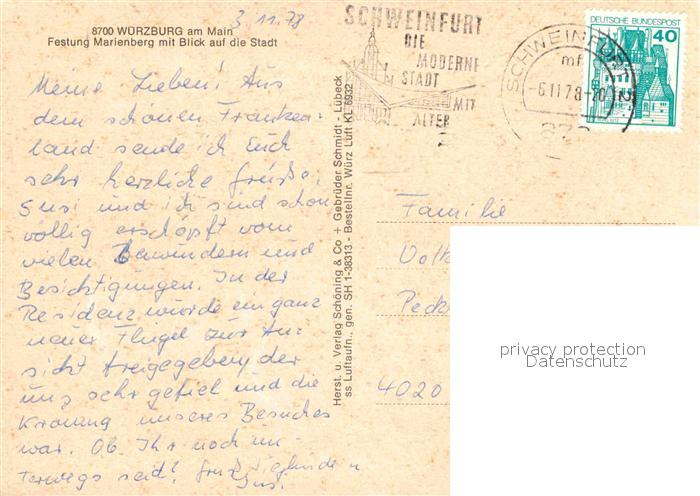 3.11.78
8700 WÜRZBURG am Main
Festung Marienberg mit Blick auf die Stadt
Meine Lieben! Aus
dem schönen Franken-
land sende ich Euch
sehr herzliche Grüße.
Susi und ich sind schon
völlig erschöpft vom
vielen Bewundern und
Besichtigungen. In der
Residenz wurde ein ganz
neuer Flügel zur An-
sicht freigegeben, der
uns sehr gefiel und die
Krönung unseres Besuches
war. Ob Ihr noch un-
terwegs seid? Gruß Sieglinde u
Susi
Herst. u. Verlag Schöning & Co + Gebrüder Schmidt - Lübeck
ss Luftaufn., gen. SH 1-38313 - Bestellnr. Würz Luft KL 6932
SCHWEINFURT
DIE
MODERNE
STADT
MIT
ALTER
SCHWEINFURT 2
mf
-6.11.78-20
DEUTSCHE BUNDESPOST
40
Familie
4020
privacy protection
Datenschutz